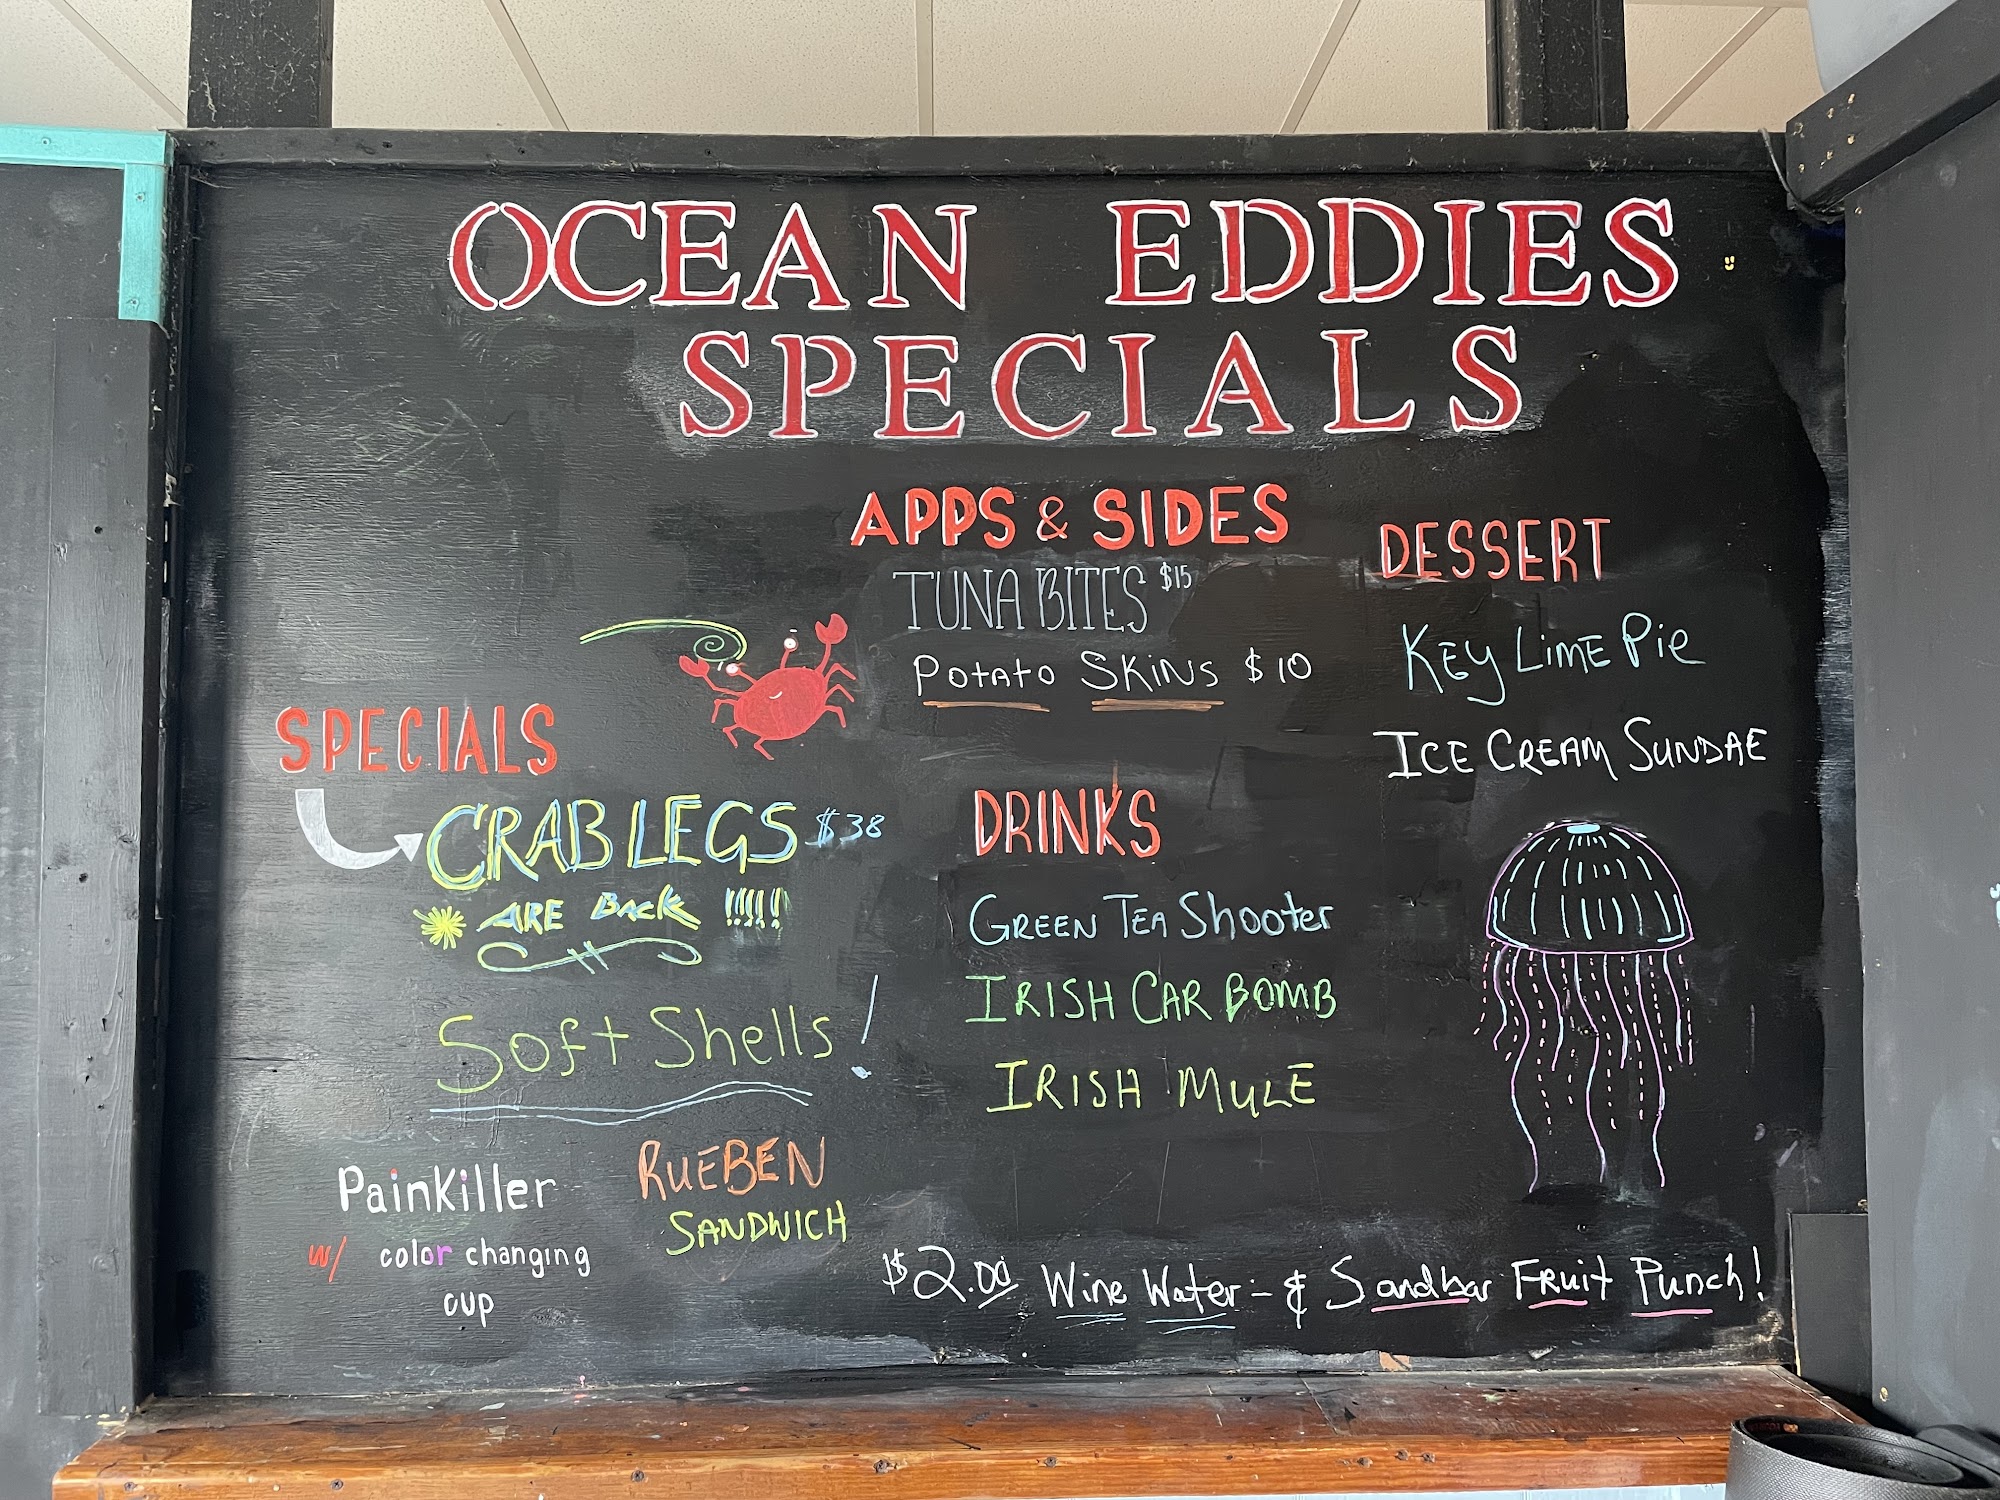 OCEAN EDDIES
SPECIALS
APPS & SIDES
TUNA BITES $15
POTATO SKINS $10
DESSERT
KEY LIME PIE
ICE CREAM SUNDAE
SPECIALS
CRAB LEGS $38
ARE BACK !!!!!
Soft Shells!
PainKiller
w/ color changing
cup
RUEBEN
SANDWICH
DRINKS
GREEN TEA Shooter
IRISH CAR BOMB
IRISH MULE
$2.00 Wine Water - & Sandbar Fruit Punch!